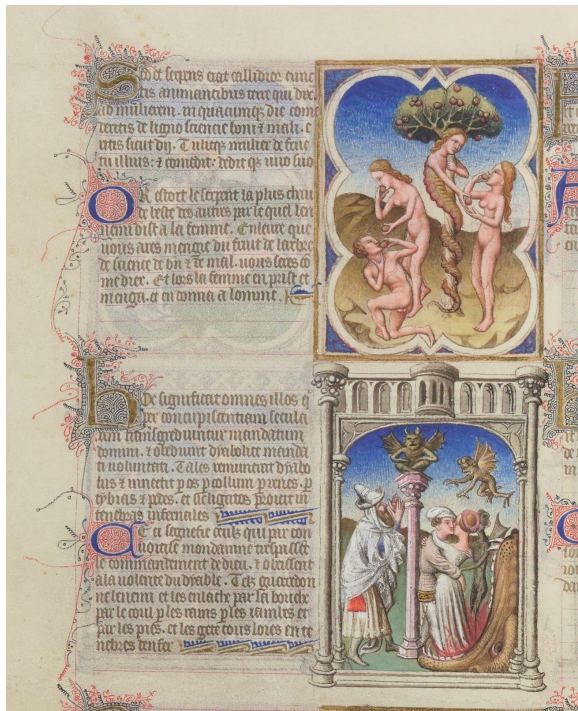 Sed et serpens erat callidior cunc
tis animantibus terre qui dix
ad mulierem. in quacumque die com
deritis de ligno sciencie boni et mali. e
ritis sicut dij. Tulit que mulier de fruc
tu illius: et comedit: dedit que uiro suo
OR estoit le serpent la plus chau
de beste des autres par le quel len
nemi dist a la femme. En leure que
uous ares mengie du fruit de larbre
de science de bn et de mal. uous seres co
me diex. Et lors la femme en prist et
menga. et en donna a lomme.
hoc significat omnes illos q
per concupiscentiam secula
rem transgrediuntur mandatum
domini. et obediunt dyabolice manda
ti uoluntati. Tales remunerat dyabo
lus et innectit p os p collum p renes. p
tybias et pedes. et sic ligatos proicit in
tenebras infernales
Ce ci segnefie ceuls qui par con
uoitise mondainne trespassent
le commandement de dieu. et obeissent
a la uolente du dyable. Tez guerredon
ne lenemi et les enlache par la bouche
par le coul p les rains p les iambes et
par les pies. et les gete tous loies en te
nebres denfer